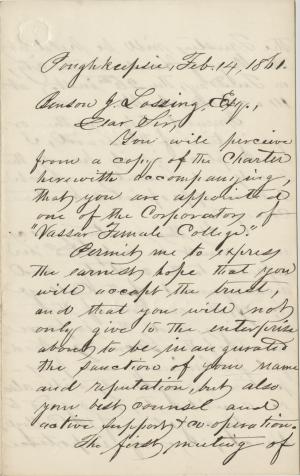 Poughkeepsie, Feb. 14, 1861.
Benson J. Lossing, Esq.,
Dear Sir,
You will perceive
from a copy of the Charter
herewith accompanying,
that you are appointed
one of the Corporators of
"Vassar Female College."
Permit me to express
the earnest hope that you
will accept the trust,
and that you will not
only give to the enterprise
about to be inaugurated
the sanction of your name
and reputation, but also
your best counsel and
active support & co-operation.
The first meeting of